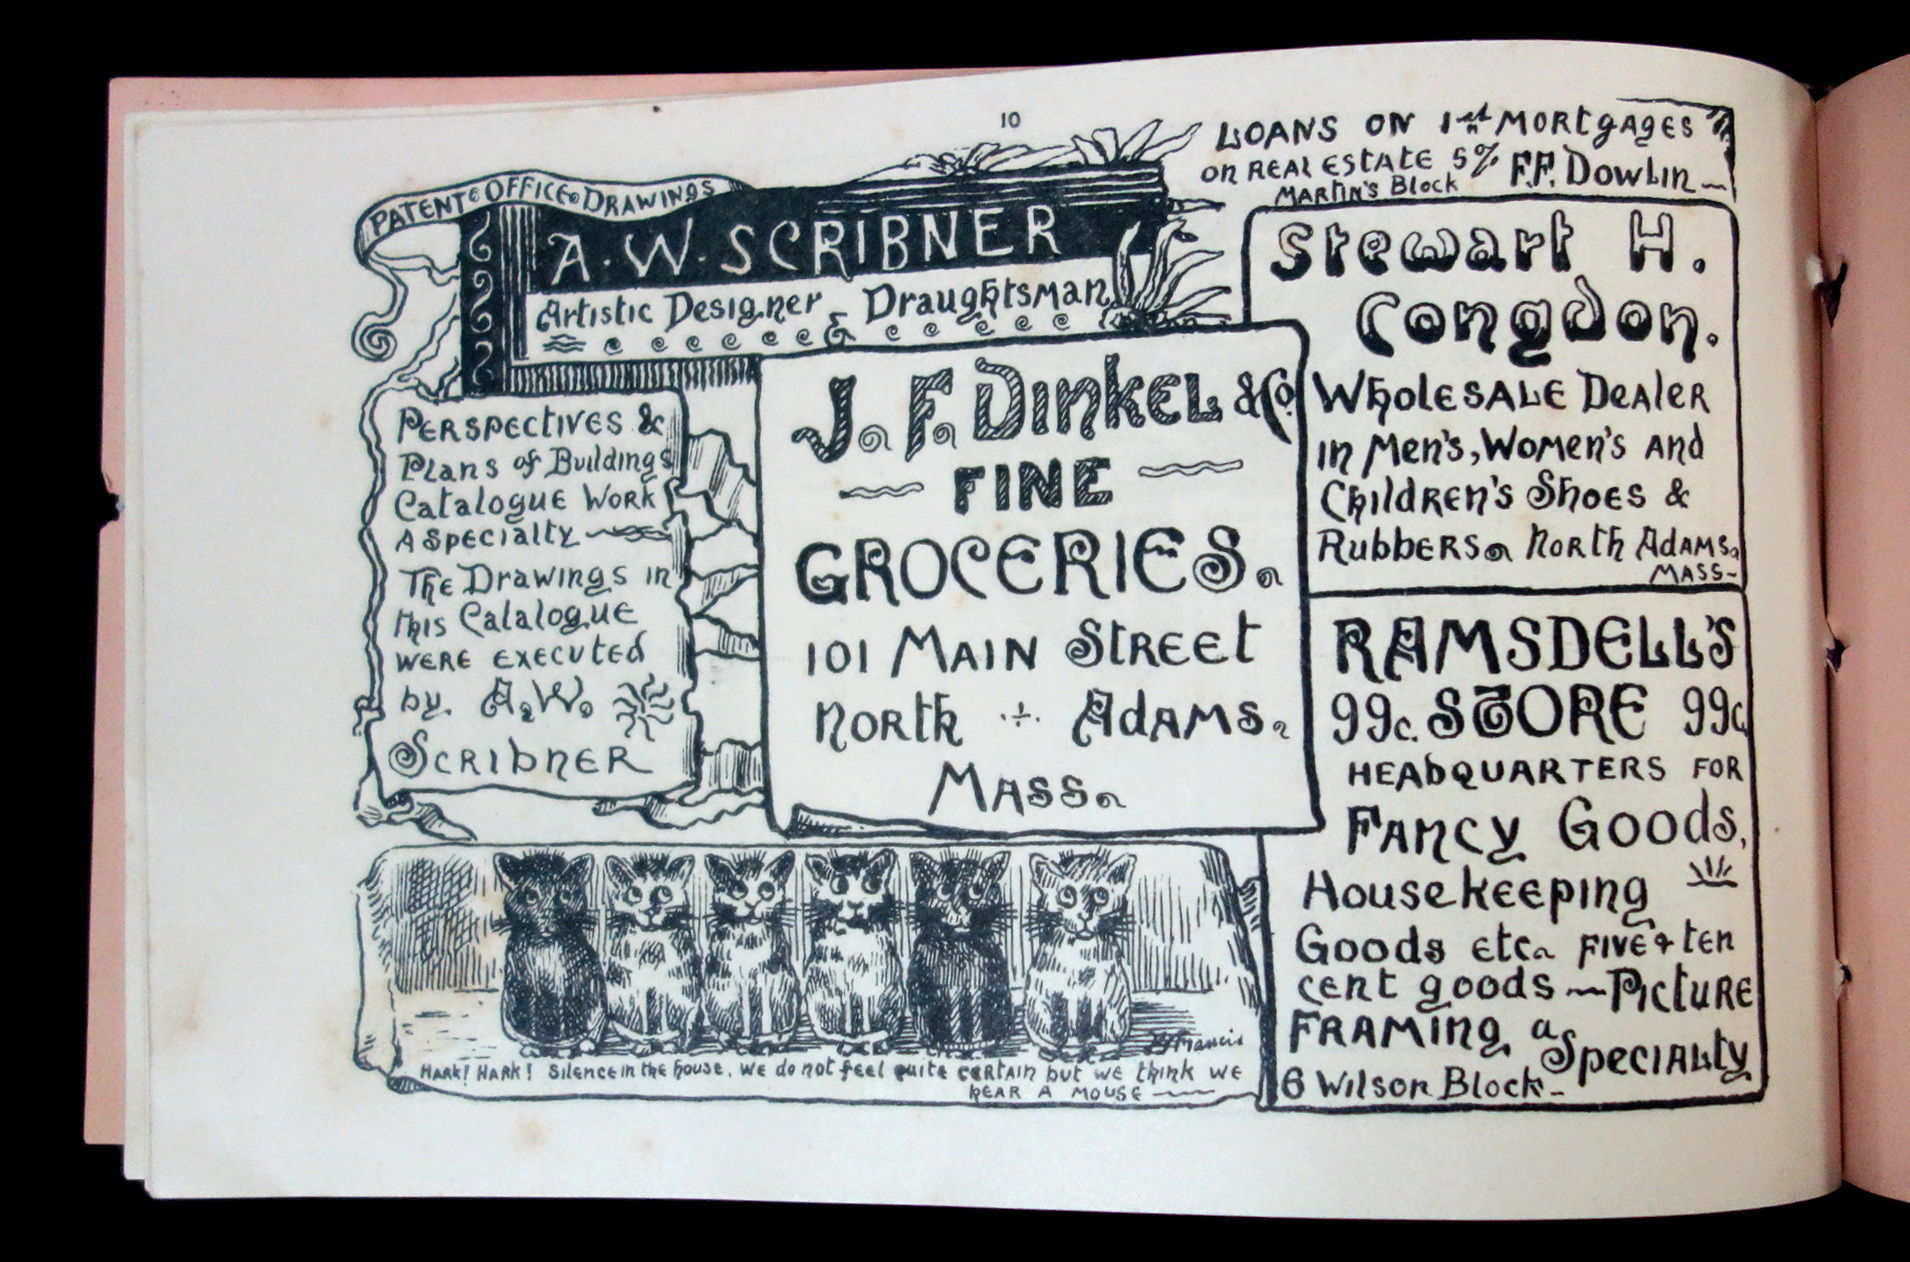 10
PATENT OFFICE DRAWINGS
A. W. SCRIBNER
Artistic Designer & Draughtsman
PERSPECTIVES &
Plans of Buildings
Catalogue WORK
A SPECIALTY
THE DRAWINGS in
this Catalogue
WERE EXECUTED
by A. W.
SCRIBNER
J. F. DINKEL & Co.
FINE
GROCERIES.
101 MAIN STREET
NORTH ÷ ADAMS.
MASS.
LOANS ON 1st MORTGAGES
ON REAL ESTATE 5% F.F. DOWLIN
MARTIN'S Block
Stewart H.
Congdon.
WHOLESALE DEALER
IN MEN'S, WOMEN'S AND
Children's SHOES &
RUBBERS. NORTH ADAMS.
MASS-
RAMSDELL'S
99c. STORE 99c.
HEADQUARTERS FOR
FANCY GOODS,
Housekeeping
Goods etc. FIVE & TEN
cent goods - PICTURE
FRAMING a
SPECIALTY
6 Wilson Block-
HARK! HARK! Silence in the house, we do not feel quite certain but we think we
hear a mouse